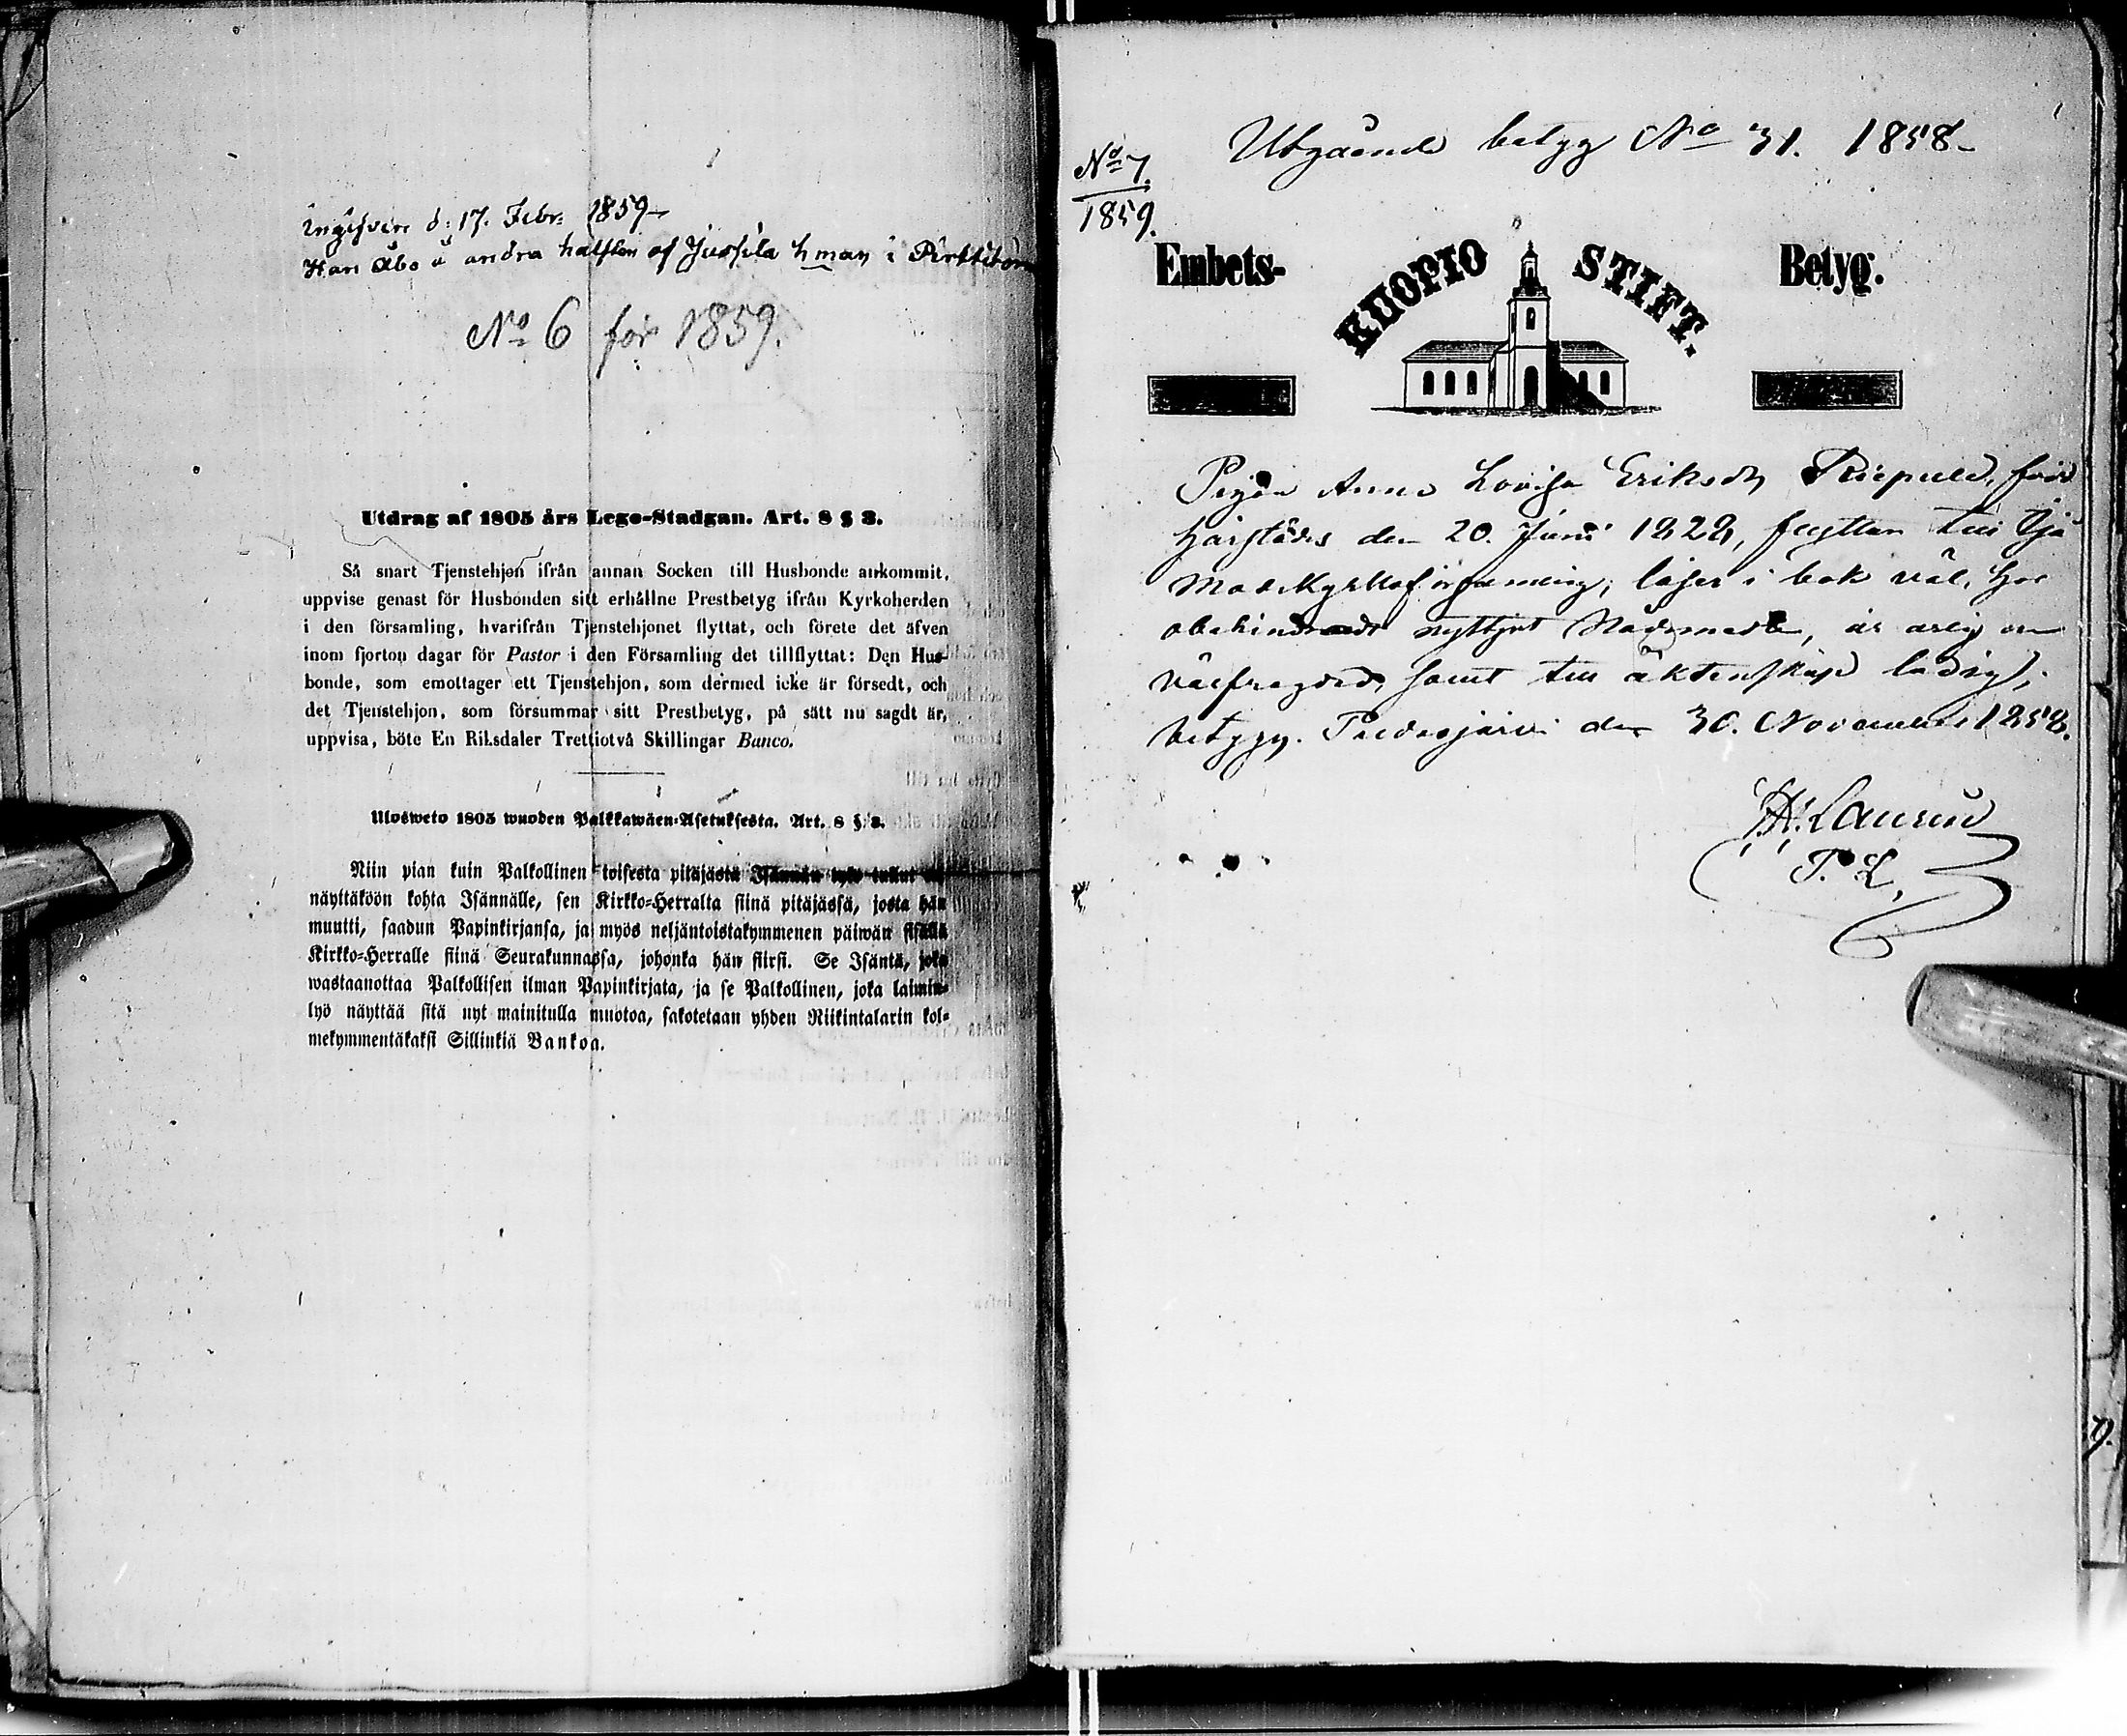 Ingifven d: 17. Febr. 1859
Han Åbo å andra hälften af Jussila hman i Pirttikos
No 6 för 1859.
Utdrag af 1805 års Lego-Stadgan. Art. 8 § 3.
Så snart Tjenstehjon ifrån annan Socken till Husbonde ankommit,
uppvise genast för Husbonden sitt erhållne Prestbetyg ifrån Kyrkoherden
i den församling, hvarifrån Tjenstehjonet flyttat, och förete det äfven
inom fjorton dagar för Pastor i den Församling det tillflyttat: Den Hus-
bonde, som emottager ett Tjenstehjon, som dermed icke är försedt, och
det Tjenstehjon, som försummar sitt Prestbetyg, på sätt nu sagdt är,
uppvisa, böte En Riksdaler Trettiotvå Skillingar Banco.
Ulosweto 1805 wuoden Palkkawäen-Asetuksesta. Art. 8 §. 3.
Niin pian kuin Palkollinen toisesta pitäjästä Isännän tykö tullut on
näyttäköön kohta Isännälle, sen Kirkko-Herralta siinä pitäjässä, josta hän
muutti, saadun Papinkirjansa, ja myös neljäntoistakymmenen päiwän sisällä
Kirkko-Herralle siinä Seurakunnassa, johonka hän siirsi. Se Isäntä, joka
wastaanottaa Palkollisen ilman Papinkirjata, ja se Palkollinen, joka laimin-
lyö näyttää sitä nyt mainitulla muotoa, sakotetaan yhden Riikintalarin kol-
mekymmentäkaksi Sillinkiä Bankoa.
Utgående betyg No 31. 1858
No 7.
1859.
Embets- KUOPIO STIFT. Betyg.
Pigan Anna Lovisa Eriksdr född
härstädes den 20. Juni 1828, flyttar till
Moderkyrkoförsamling; läser i bok väl, har
obehindradt nyttjat Nådemedlen, är ärlig och
välfrägdad, samt till äktenskap ledig,
betygar. Pudasjärvi den 30. November 1858.